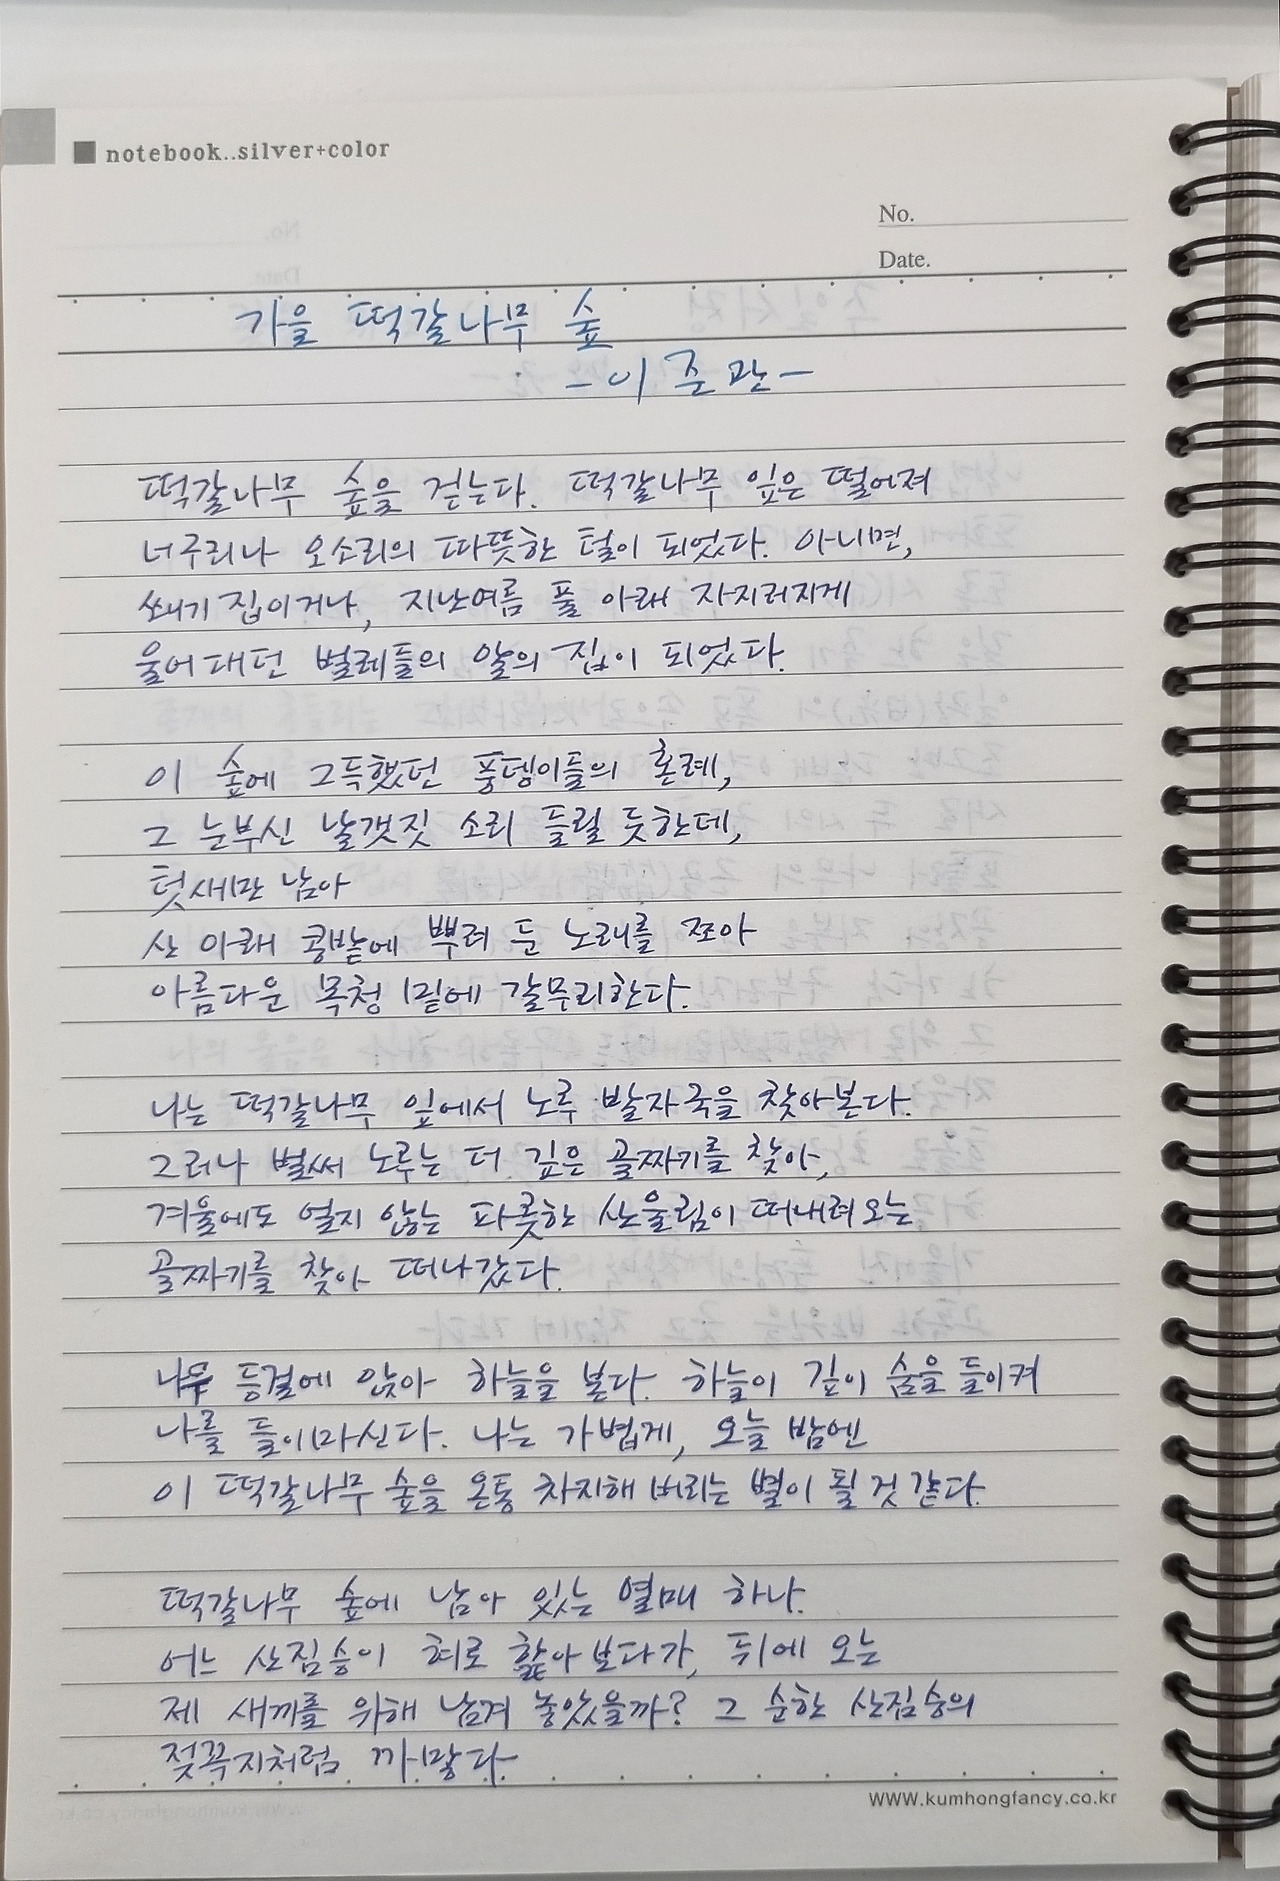 notebook..silver+color
No.
Date.
가을 떡갈나무 숲
-이준관-
떡갈나무 숲을 걷는다. 떡갈나무 잎은 떨어져
너구리나 오소리의 따뜻한 털이 되었다. 아니면,
쐐기집이거나, 지난여름 풀 아래 자지러지게
울어대던 벌레들의 알의 집이 되었다.
이 숲에 그득했던 풍뎅이들의 혼례,
그 눈부신 날갯짓 소리 들릴 듯한데,
텃새만 남아
산 아래 콩밭에 뿌려 둔 노래를 쪼아
아름다운 목청 밑에 갈무리한다.
나는 떡갈나무 잎에서 노루 발자국을 찾아본다.
그러나 벌써 노루는 더 깊은 골짜기를 찾아,
겨울에도 얼지 않는 파릇한 산울림이 떠내려오는
골짜기를 찾아 떠나갔다.
나무 등걸에 앉아 하늘을 본다. 하늘이 깊이 숨을 들이켜
나를 들이마신다. 나는 가볍게, 오늘 밤엔
이 떡갈나무 숲을 온통 차지해 버리는 별이 될 것 같다.
떡갈나무 숲에 남아 있는 열매 하나.
어느 산짐승이 혀로 핥아보다가, 뒤에 오는
제 새끼를 위해 남겨 놓았을까? 그 순한 산짐승의
젖꼭지처럼 까맣다.
www.kumhongfancy.co.kr